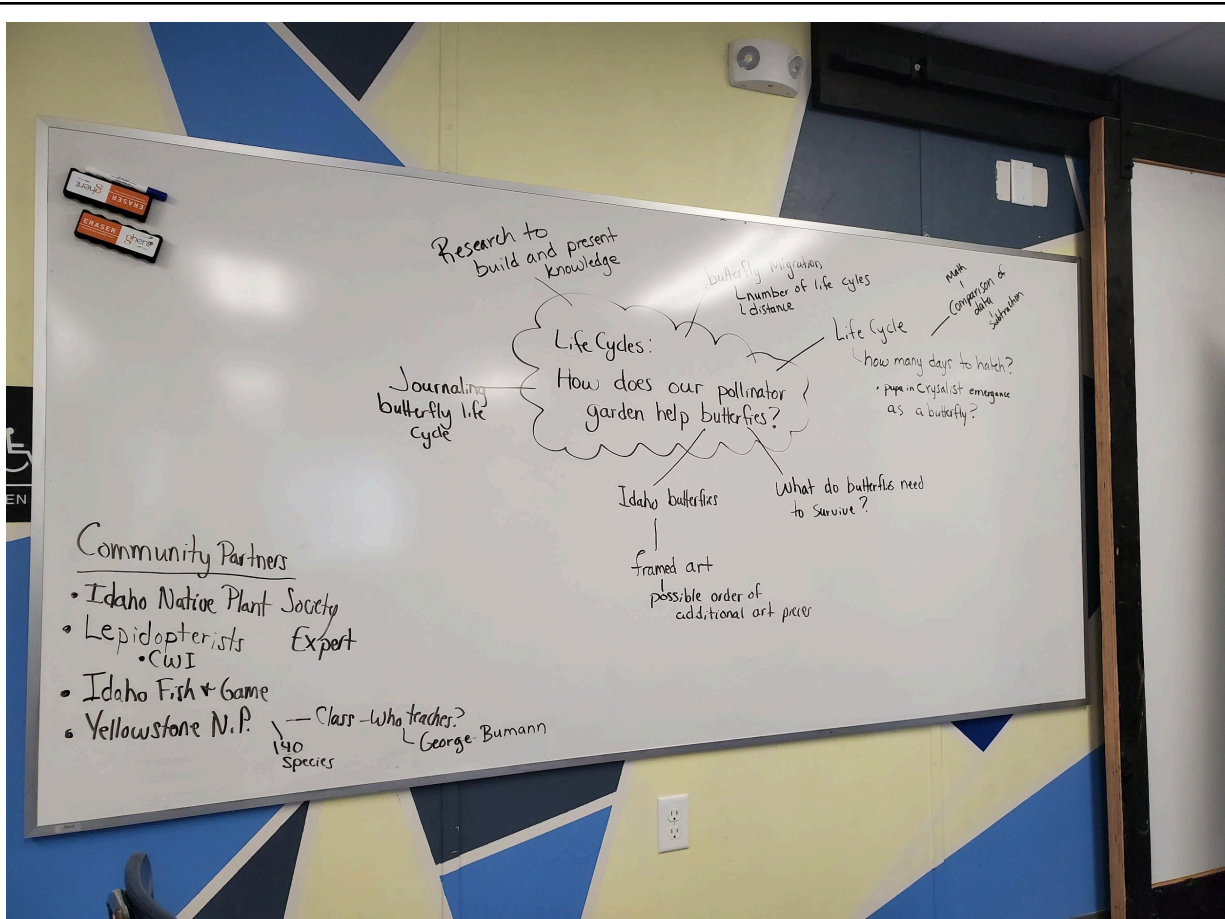 ghent
ERASER
ERASER
ghent
Research to
build and present
knowledge
butterfly Migration
number of life cyles
distance
Math
Comparison of
data
subtraction
Life Cycle
how many days to hatch?
• pupa in Crysalist emergance
as a butterfly?
Life Cycles:
How does our pollinator
garden help butterfies?
Journaling
butterfly life
cycle
Idaho butterfies
framed art
possible order of
additional art pieces
What do butterflies need
to survive?
Community Partners
• Idaho Native Plant Society
• Lepidopterists Expert
• CWI
• Idaho Fish & Game
• Yellowstone N.P. — Class - Who teaches?
George Bumann
140
Species
EN